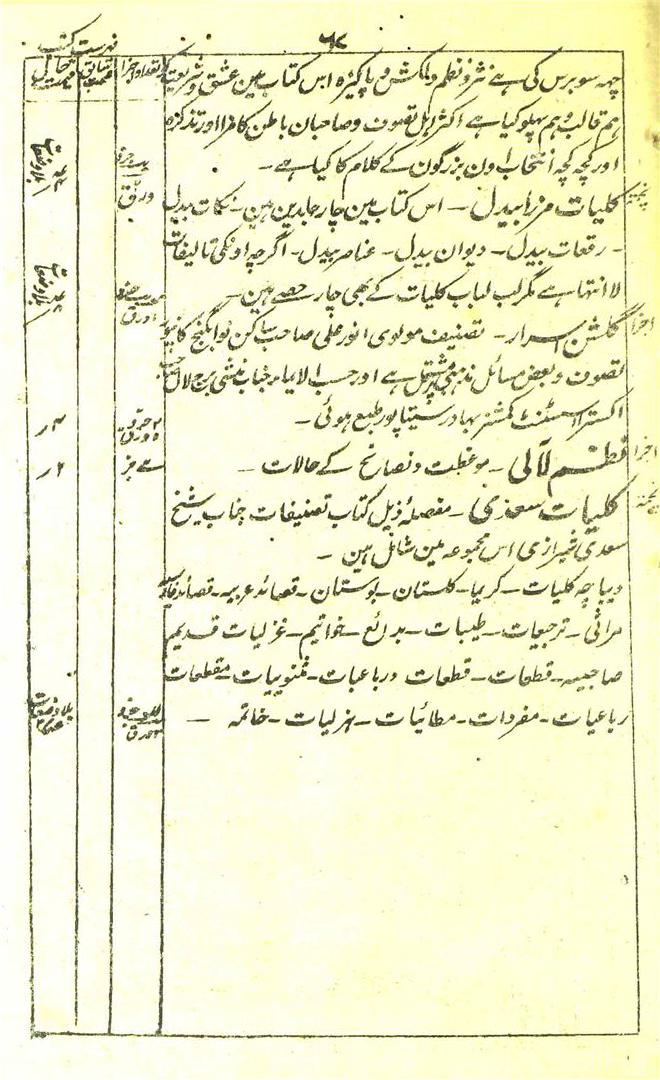 ۶۷
فہرست کتب
تعداد اجزا
قیمت سابق
قیمت حال
چہہ سو برس کی ہے نثر و نظم دلکش و پاکیزہ اس کتاب مین عشق و شریعت کو
ہم قالب و ہم پہلو کیا ہے اکثر اہل تصوف و صاحبان باطن کا مزا اور تذکرہ
اور کچہ کچہ انتخاب اون بزرگون کے کلام کا کیا ہے ۔
پختہ کلیات مرزا بیدل ۔ اس کتاب مین چار جلدین ہین ۔ نکات بیدل
۔ رقعات بیدل ۔ دیوان بیدل ۔ عناصر بیدل ۔ اگرچہ اونکی تالیفات
لا انتہا ہے مگر لب لباب کلیات کے بھی چار حصے ہین ۔
اجزا گلشن اسرار ۔ تصنیف مولوی انور علی صاحب ساکن نوابگنج کانپور
تصوف و بعض مسائل مذہبی پر مشتمل ہے اور حسب الایماء جناب منشی برج لال صاحب
اکسٹرا اسسٹنٹ کمشنر بہادر سیتاپور طبع ہوئی ۔
اجزا نظم لآلی ۔ موعظت و نصائح کے حالات ۔
پختہ کلیات سعدی ۔ مفصلۂ ذیل کتاب تصنیفات جناب شیخ
سعدی شیرازی اس مجموعہ مین شامل ہین ۔
دیباچہ کلیات ۔ کریما ۔ گلستان ۔ بوستان ۔ قصائد عربیہ ۔ قصائد فارسیہ
مراثی ۔ ترجیعات ۔ طیبات ۔ بدائع ۔ خواتیم ۔ غزلیات قدیم
صاحبیہ ۔ قطعات ۔ قطعات و رباعیات ۔ مثنویات ۔ مقطعات
رباعیات ۔ مفردات ۔ مطائبات ۔ ہزلیات ۔ خاتمہ ۔